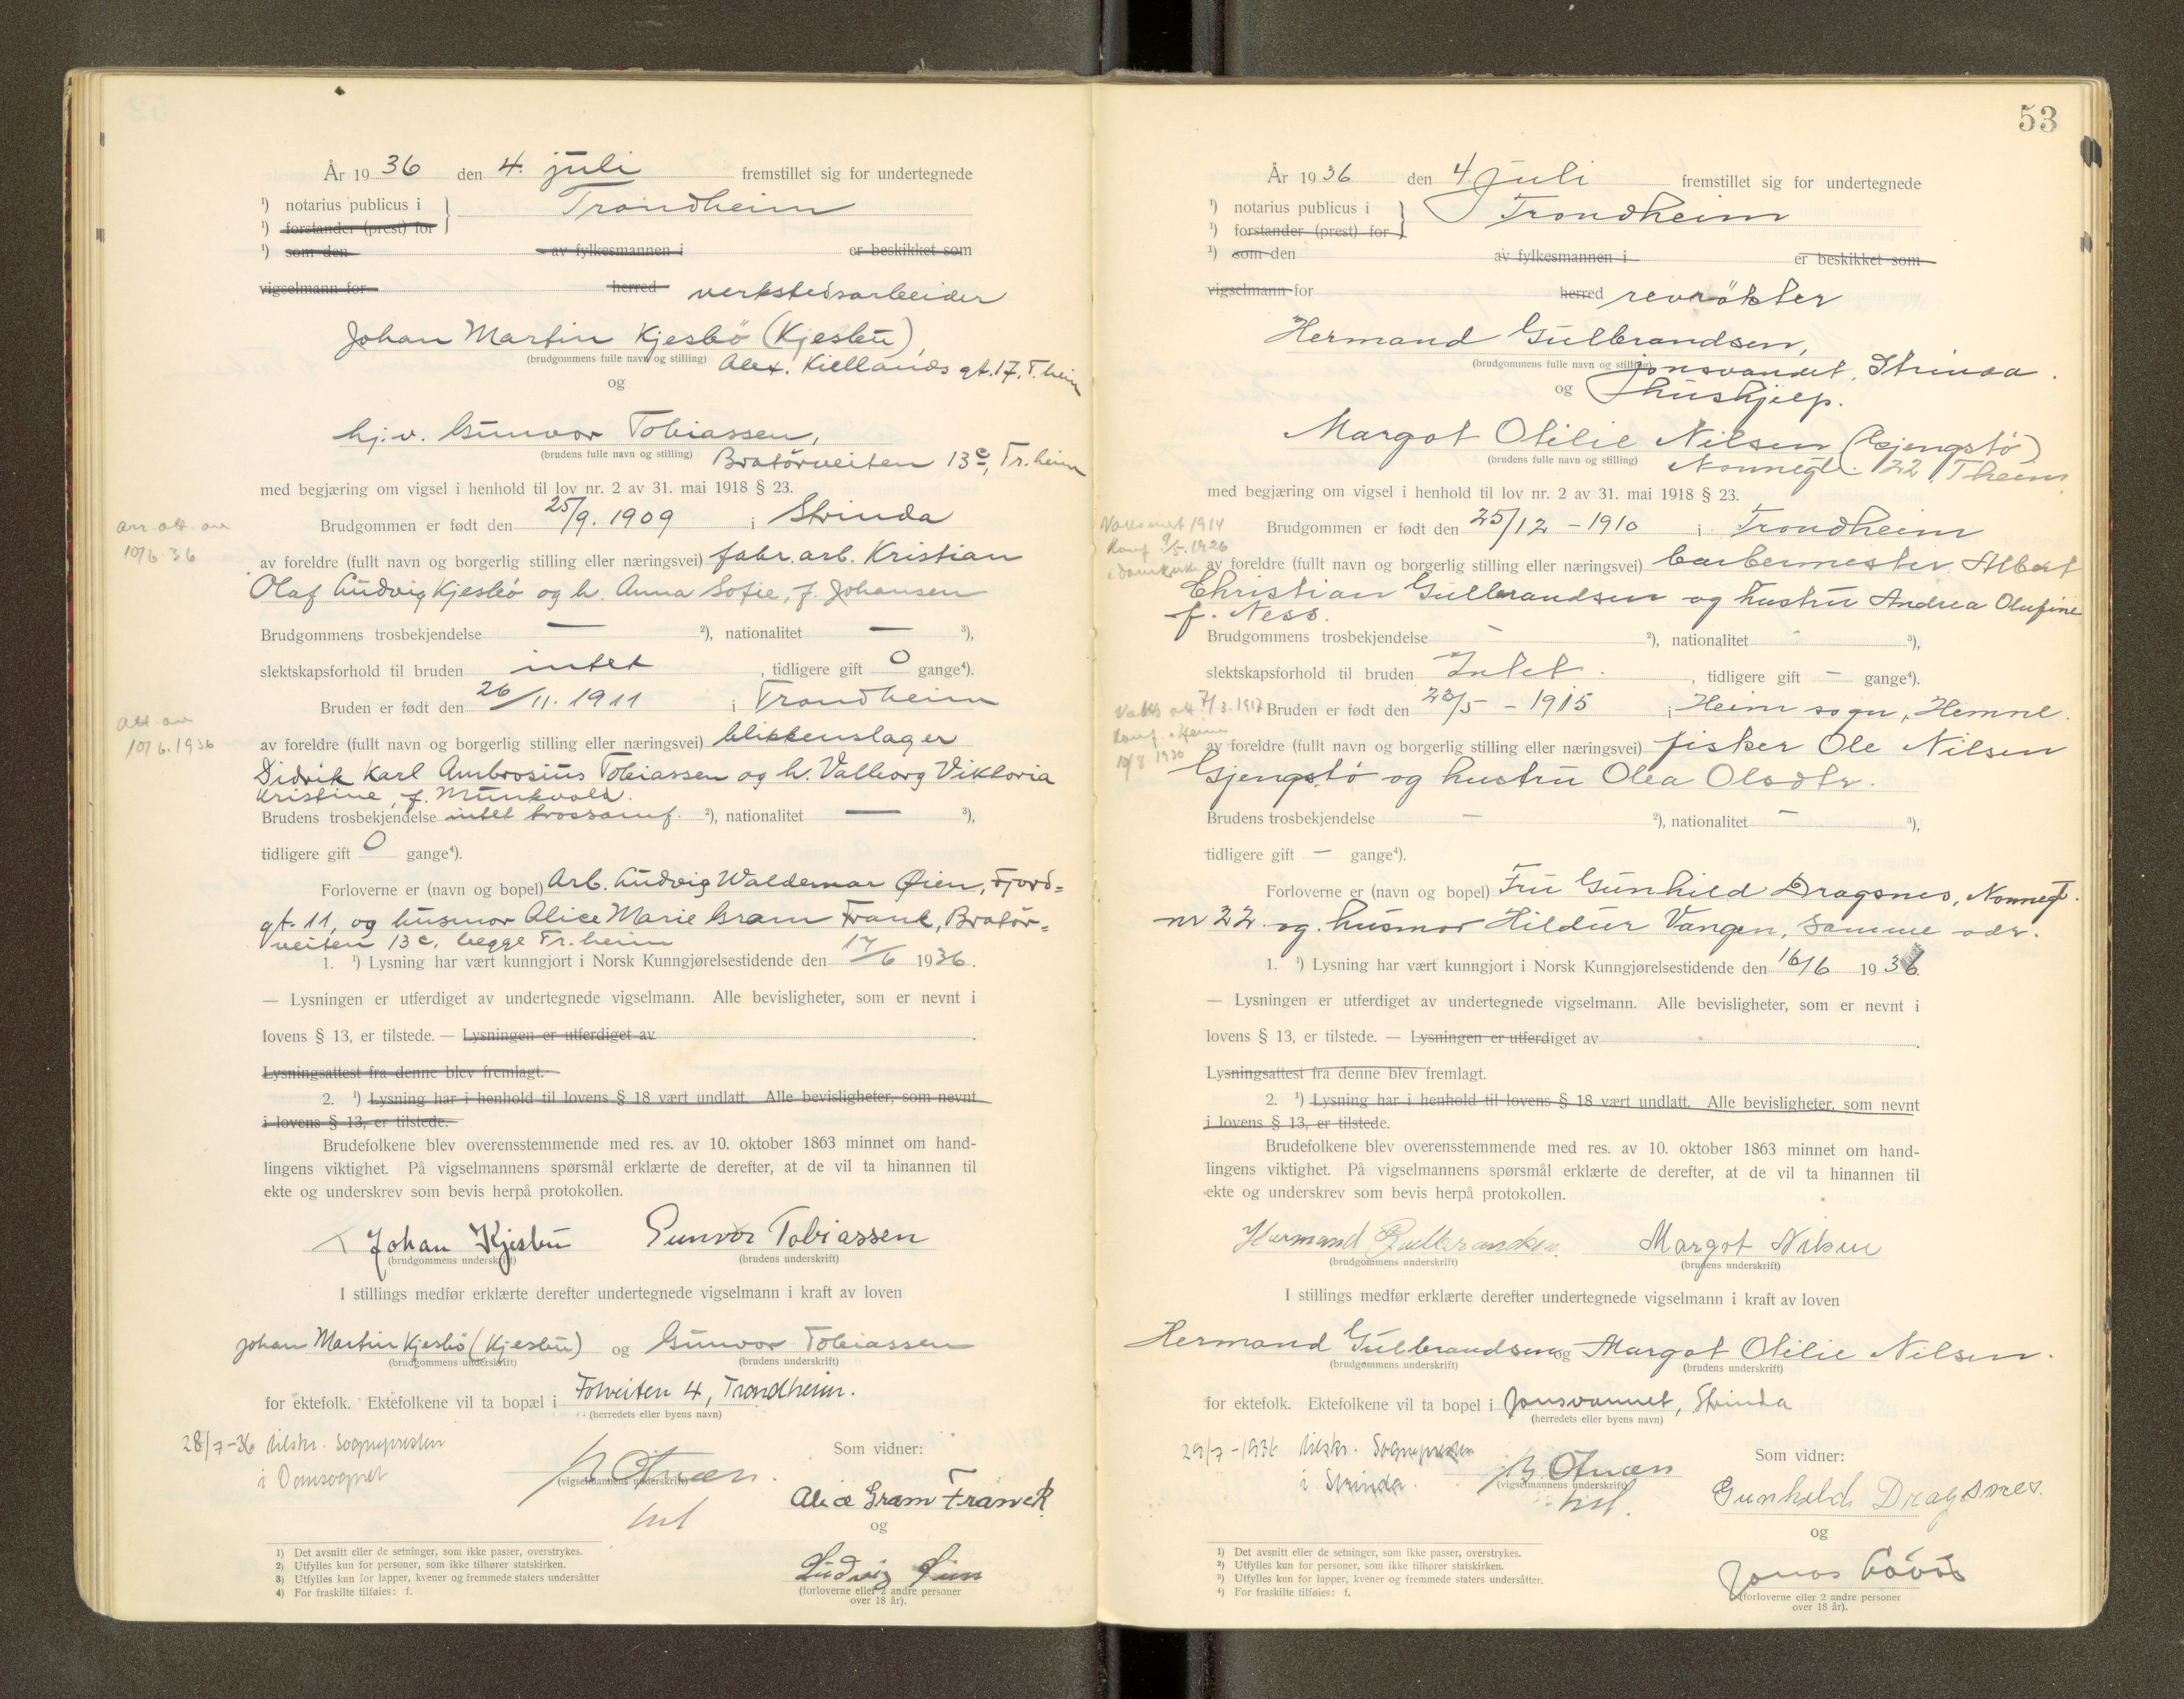 År 1936 den 4. juli fremstillet sig for undertegnede
¹) notarius publicus i } Trondheim
¹) forstander (prest) for
¹) som den av fylkesmannen i er beskikket som
vigselmann for herred verkstedsarbeider
Johan Martin Kjesbö (Kjesbu),
(brudgommens fulle navn og stilling) Alex. Kiellands gt. 17, T.heim
og
hj.v. Gunvor Tobiassen,
(brudens fulle navn og stilling) Bratörveiten 13c, Tr.heim
med begjæring om vigsel i henhold til lov nr. 2 av 31. mai 1918 § 23.
Brudgommen er født den 25/9. 1909 i Strinda
att. av
10/6 36
av foreldre (fullt navn og borgerlig stilling eller næringsvei) fabr. arb. Kristian
Olaf Ludvig Kjesbö og h. Anna Sofie, f. Johansen
Brudgommens trosbekjendelse — ²), nationalitet — ³),
slektskapsforhold til bruden intet, tidligere gift 0 gange⁴).
Bruden er født den 26/11. 1911 i Trondheim
att av
10/6. 1936
av foreldre (fullt navn og borgerlig stilling eller næringsvei) blikkenslager
Didrik Karl Ambrosius Tobiassen og h. Valborg Viktoria
Kristine, f. Munkvold.
Brudens trosbekjendelse intet trossamf. ²), nationalitet — ³),
tidligere gift 0 gange⁴).
Forloverne er (navn og bopel) Arb. Ludvig Waldemar Øien, Fjord=
gt. 11, og husmor Alice Marie Gram Frank, Bratör=
veiten 13c, begge Tr.heim
1. ¹) Lysning har vært kunngjort i Norsk Kunngjørelsestidende den 17/6 1936.
— Lysningen er utferdiget av undertegnede vigselmann. Alle bevisligheter, som er nevnt i
lovens § 13, er tilstede. — Lysningen er utferdiget av .
Lysningsattest fra denne blev fremlagt.
2. ¹) Lysning har i henhold til lovens § 18 vært undlatt. Alle bevisligheter, som nevnt
i lovens § 13, er tilstede.
Brudefolkene blev overensstemmende med res. av 10. oktober 1863 minnet om hand-
lingens viktighet. På vigselmannens spørsmål erklærte de derefter, at de vil ta hinannen til
ekte og underskrev som bevis herpå protokollen.
Johan Kjesbu Gunvor Tobiassen
(brudgommens underskrift) (brudens underskrift)
I stillings medfør erklærte derefter undertegnede vigselmann i kraft av loven
Johan Martin Kjesbö (Kjesbu) og Gunvor Tobiassen
(brudgommens underskrift) (brudens underskrift)
for ektefolk. Ektefolkene vil ta bopæl i Tolveiten 4, Trondheim.
(herredets eller byens navn)
28/7-36 tilskr. Sognepresten
i Domsognet
Som vidner:
(vigselmannens underskrift)
Alice Gram Franck
og
Ludvig Øien
(forloverne eller 2 andre personer
over 18 år).
1) Det avsnitt eller de setninger, som ikke passer, overstrykes.
2) Utfylles kun for personer, som ikke tilhører statskirken.
3) Utfylles kun for lapper, kvener og fremmede staters undersåtter
4) For fraskilte tilføies: f.
53
År 1936 den 4. Juli fremstillet sig for undertegnede
¹) notarius publicus i } Trondheim
¹) forstander (prest) for
¹) som den av fylkesmannen i er beskikket som
vigselmann for herred revrökter
Hermand Gulbrandsen,
(brudgommens fulle navn og stilling) Jonsvandet, Strinda.
og hushjelp.
Margot Otilie Nilsen (Gjengstö)
(brudens fulle navn og stilling) Nonnegt. 22 T.heim
med begjæring om vigsel i henhold til lov nr. 2 av 31. mai 1918 § 23.
Brudgommen er født den 25/12 - 1910 i Trondheim
1914
Konf 9/5. 1926
i Domkirke
av foreldre (fullt navn og borgerlig stilling eller næringsvei) barbermester Albert
Christian Gulbrandsen og hustru Andrea Olufine
f. Ness.
Brudgommens trosbekjendelse - ²), nationalitet - ³),
slektskapsforhold til bruden Intet. , tidligere gift — gange⁴).
Bruden er født den 23/5 - 1915 i Heim sogn, Hemne.
7/3. 1917
Konf. i Heim
10/8 1930
av foreldre (fullt navn og borgerlig stilling eller næringsvei) fisker Ole Nilsen
Gjengstö og hustru Olea Olsdtr.
Brudens trosbekjendelse — ²), nationalitet — ³),
tidligere gift — gange⁴).
Forloverne er (navn og bopel) Fru Gunhild Dragsnes, Nonnegt.
nr 22 og husmor Hildur Vangen, samme adr.
1. ¹) Lysning har vært kunngjort i Norsk Kunngjørelsestidende den 16/6 1936.
— Lysningen er utferdiget av undertegnede vigselmann. Alle bevisligheter, som er nevnt i
lovens § 13, er tilstede. — Lysningen er utferdiget av .
Lysningsattest fra denne blev fremlagt.
2. ¹) Lysning har i henhold til lovens § 18 vært undlatt. Alle bevisligheter, som nevnt
i lovens § 13, er tilstede.
Brudefolkene blev overensstemmende med res. av 10. oktober 1863 minnet om hand-
lingens viktighet. På vigselmannens spørsmål erklærte de derefter, at de vil ta hinannen til
ekte og underskrev som bevis herpå protokollen.
Hermand Gulbrandsen. Margot Nilsen
(brudgommens underskrift) (brudens underskrift)
I stillings medfør erklærte derefter undertegnede vigselmann i kraft av loven
Hermand Gulbrandsen og Margot Otilie Nilsen.
(brudgommens underskrift) (brudens underskrift)
for ektefolk. Ektefolkene vil ta bopel i Jonsvannet, Strinda
(herredets eller byens navn)
29/7-1936 tilskr. Sognepresten
i Strinda.
Som vidner:
(vigselmannens underskrift)
Gunhild Dragsnes.
og
Jonas
(forloverne eller 2 andre personer
over 18 år).
1) Det avsnitt eller de setninger, som ikke passer, overstrykes.
2) Utfylles kun for personer, som ikke tilhører statskirken.
3) Utfylles kun for lapper, kvener og fremmede staters undersåtter.
4) For fraskilte tilføies: f.